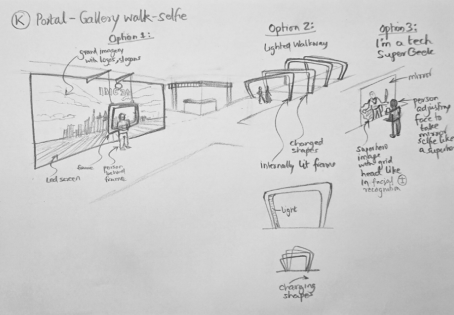 K Portal - Gallery walk-selfie
Option 1:
grand imagery
with logos, slogans
Led screen
frame
person
behind
frame
Option 2:
Lighted Walkway
changed
shapes
Internally lit frames
light
Changing
shapes
Option 3:
I'm a tech
SuperGeek
mirror
person
adjusting
face to
take
mirror
selfie like
a superhero
Superhero
image
with grid
head like
in facial
recognition